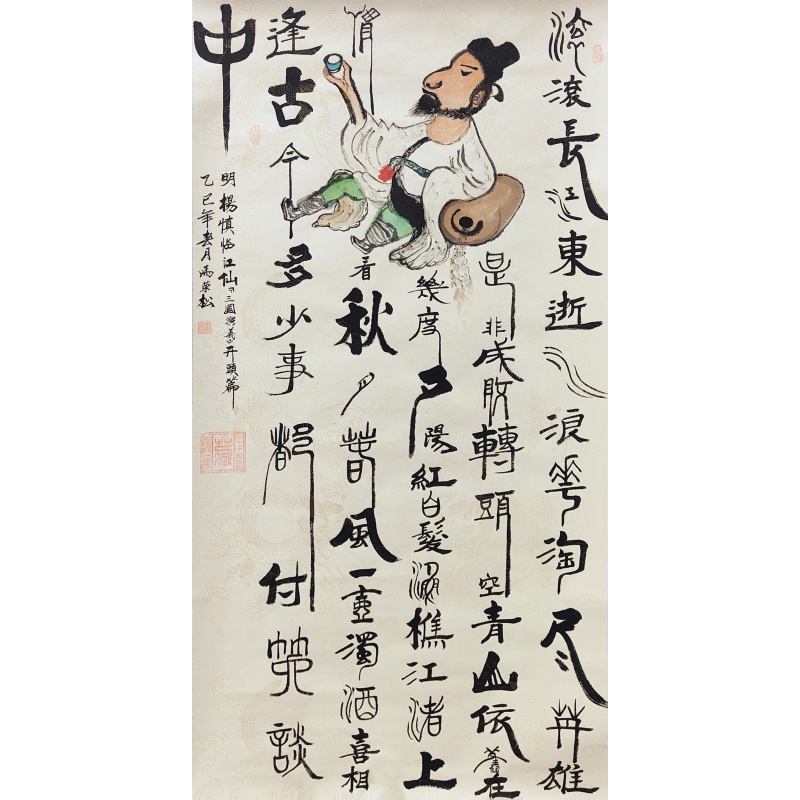 滚滾長江東逝水浪花淘尽英雄
是非成敗轉頭空青山依舊在
幾度夕陽紅白髮漁樵江渚上
慣看秋月春風一壺濁酒喜相
逢古今多少事都付笑談
中
明楊慎临江仙《三國演義》开頭篇
乙巳年春月馮荣松